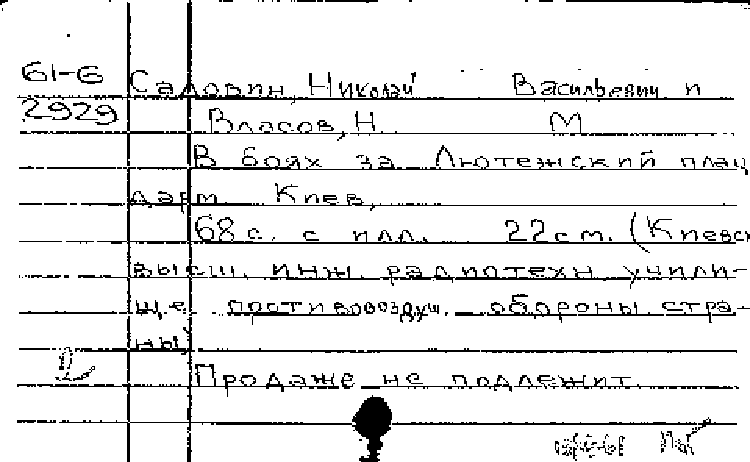 61-6
2929
Садовин, Николай Васильевич и
Власов, Н. М
В боях за Лютежский плац
дарм. Киев,
68 с. с илл. 22 см. (Киевск
высш. инж. радиотехн. учили-
ще противовоздуш. обороны стра-
ны)
Продаже не подлежит.